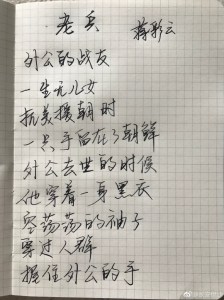 老兵
蒋彩云
外公的战友
一生无儿女
抗美援朝时
一只手留在了朝鲜
外公去世的时候
他穿着一身黑衣
空荡荡的袖子
穿过人群
握住外公的手